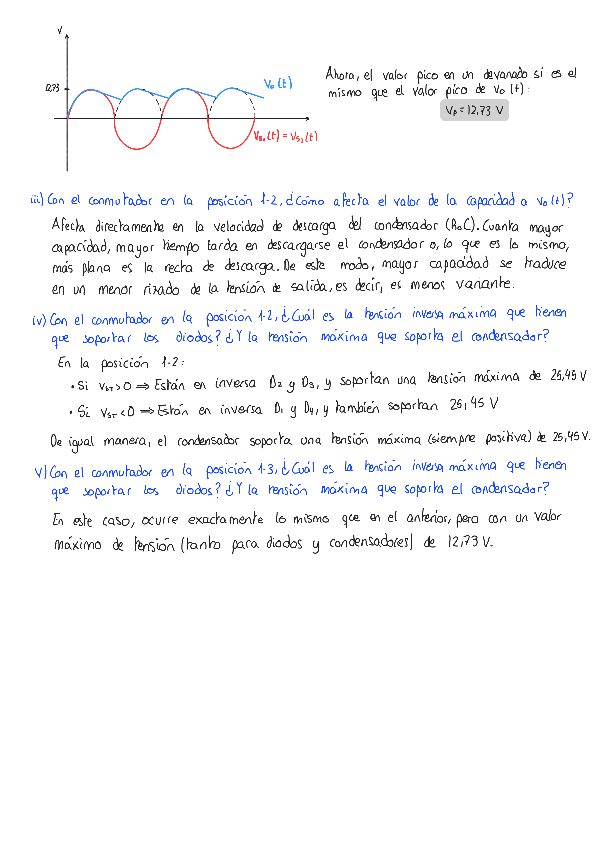 V
12,73
Vo(t)
Vs₁(t) = Vs₂(t)
Ahora, el valor pico en un devanado sí es el
mismo que el valor pico de vo (t):
Vp = 12,73 V
iii) Con el conmutador en la posición 1-2, ¿Cómo afecta el valor de la capacidad a vo(t)?
Afecta directamente en la velocidad de descarga del condensador (RoC). Cuanta mayor
capacidad, mayor tiempo tarda en descargarse el condensador o, lo que es lo mismo,
más plana es la recta de descarga. De este modo, mayor capacidad se traduce
en un menor rizado de la tensión de salida, es decir, es menos variante.
iv) Con el conmutador en la posición 1-2, ¿Cuál es la tensión inversa máxima que tienen
que soportar los diodos? ¿Y la tensión máxima que soporta el condensador?
En la posición 1-2:
• Si VST > 0 ⇒ Están en inversa D2 y D3, y soportan una tensión máxima de 25,45 V
• Si VST < 0 ⇒ Están en inversa D1 y D4, y también soportan 25,45 V
De igual manera, el condensador soporta una tensión máxima (siempre positiva) de 25,45V.
V) Con el conmutador en la posición 1-3, ¿Cuál es la tensión inversa máxima que tienen
que soportar los diodos? ¿Y la tensión máxima que soporta el condensador?
En este caso, ocurre exactamente lo mismo que en el anterior, pero con un valor
máximo de tensión (tanto para diodos y condensadores) de 12,73 V.